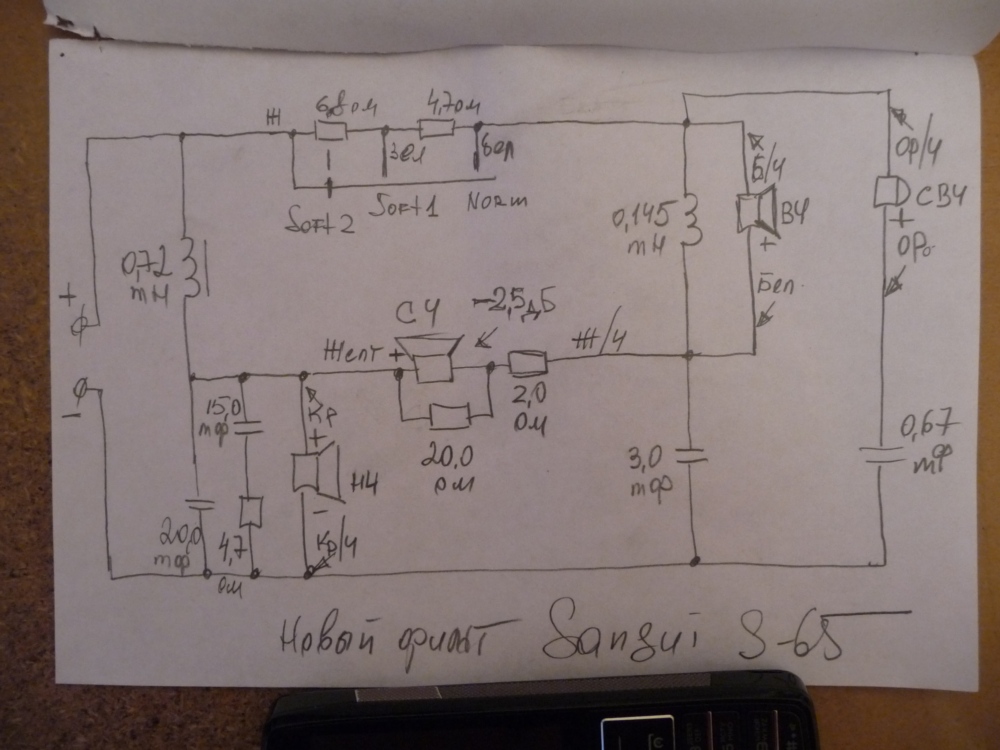 6,8 ом
4,7 ом
Ж
Зел
Бел
Soft 2
Soft 1
Norm
Ор/Ч
Б/Ч
СВЧ
+
0,145
mH
ВЧ
+
0,72
mH
ОР.
+
СЧ
-2,5дБ
Бел.
Желт +
Ж/Ч
-
15,0
mф
Кр
+
2,0
ом
20,0
ом
3,0
mф
0,67
mф
НЧ
-
20,0
mф
4,7
ом
Кр/Ч
Новый фильт Sansui S-65